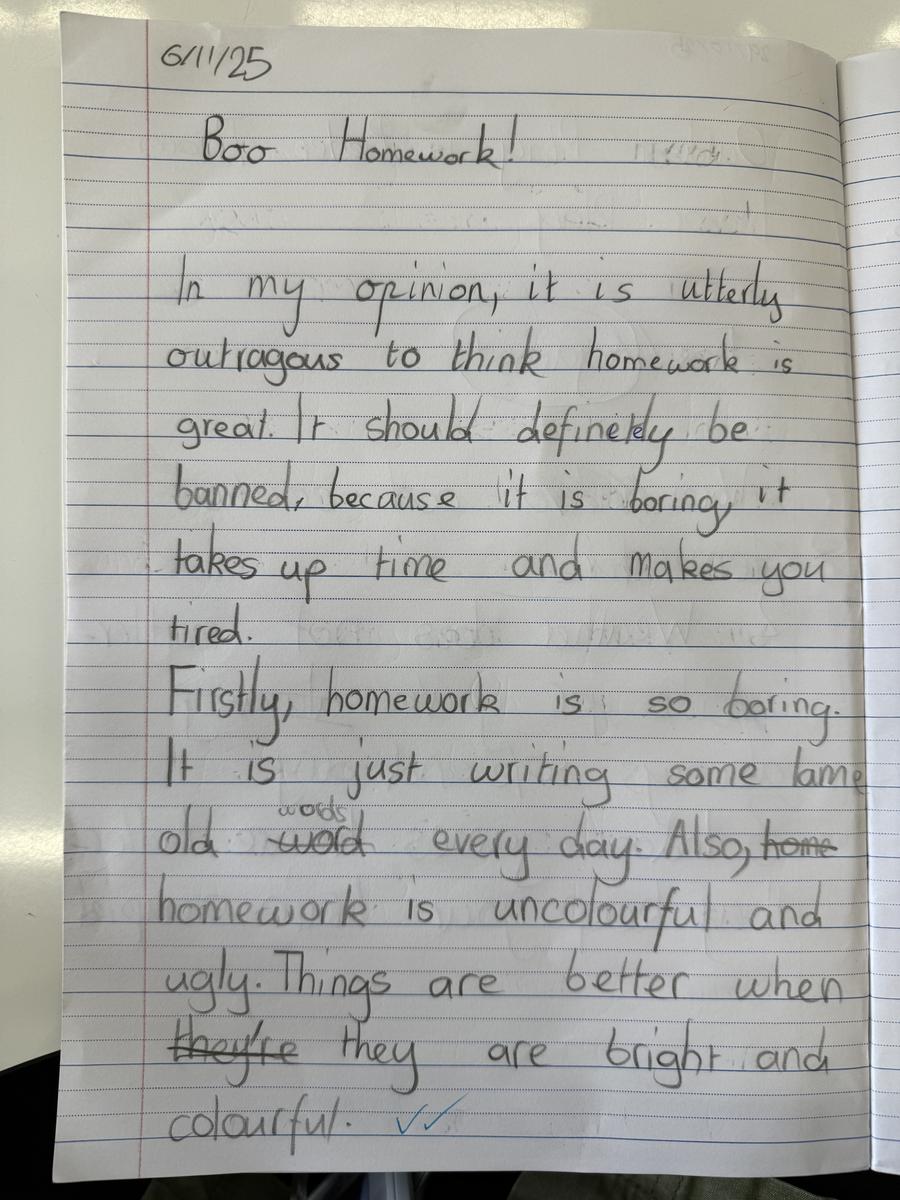 6/11/25
Boo Homework!
In my opinion, it is utterly
outragous to think homework is
great. It should definetely be
banned, because it is boring, it
takes up time and makes you
tired.
Firstly, homework is so boring.
It is just writing some lame
words
old word every day. Also, home
homework is uncolourful and
ugly. Things are better when
they're they are bright and
colourful.